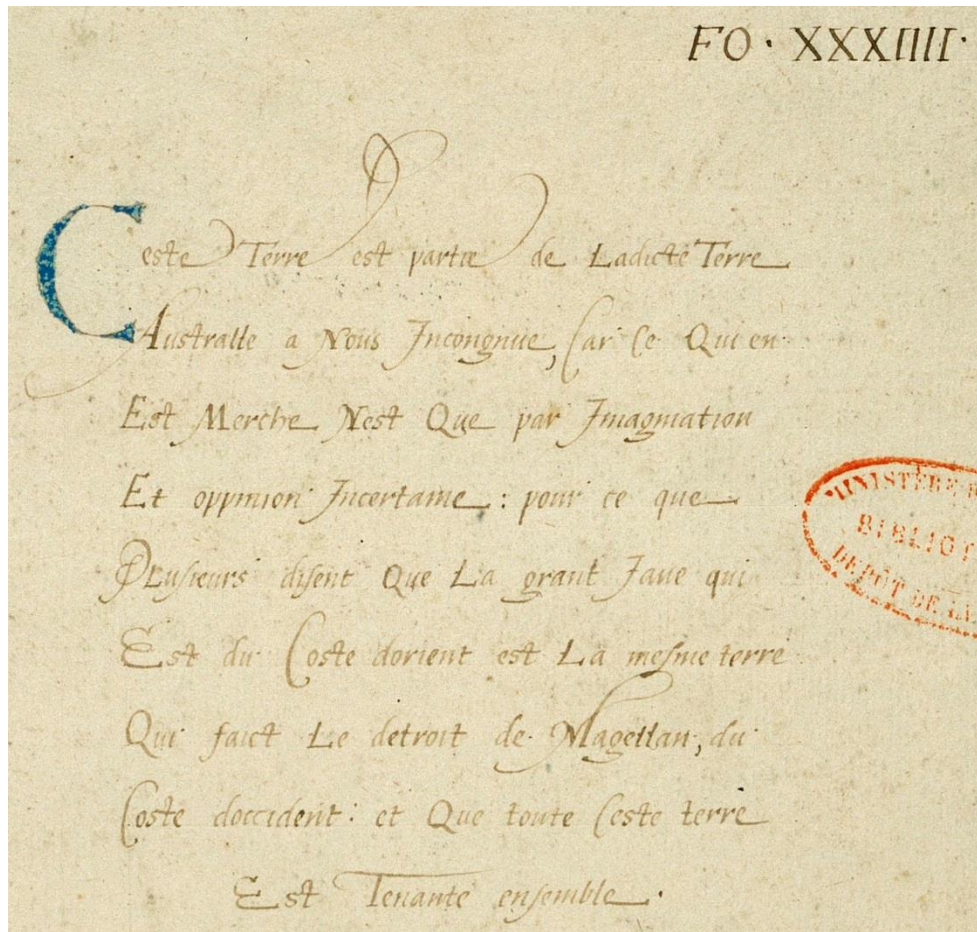 FO · XXXIIII ·
Ceste Terre est partie de Ladicte Terre
Australle a Nous Incongnue, Car Ce Qui en
Est Merche Nest Que par Imagination
Et oppinion Incertaine : pour ce que
Plusieurs disent Que La grant Jave qui
Est du Coste dorient est La mesme terre
Qui faict Le detroit de Magellan, du
Coste doccident : et Que toute Ceste terre
Est Tenante ensemble .
MINISTÈRE
BIBLIOT
DÉPÔT DE LA